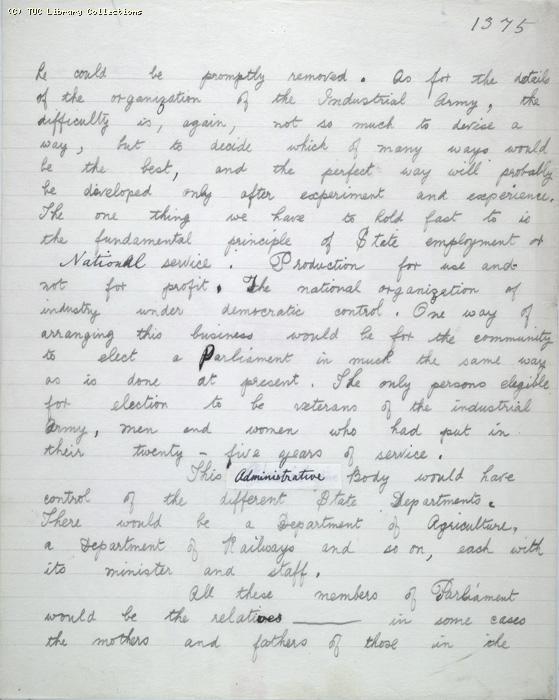 (C) TUC Library Collections
1375
he could be promptly removed. As for the details
of the organization of the Industrial Army, the
difficulty is, again, not so much to devise a
way, but to decide which of many ways would
be the best, and the perfect way will probably
be developed only after experiment and experience.
The one thing we have to hold fast to is
the fundamental principle of State employment or
National service. Production for use and
not for profit. The national organization of
industry under democratic control. One way of
arranging this business would be for the community
to elect a Parliament in much the same way
as is done at present. The only persons eligible
for election to be veterans of the industrial
Army, men and women who had put in
their twenty-five years of service.
This Administrative Body would have
control of the different State Departments.
There would be a Department of Agriculture,
a Department of Railways and so on, each with
its minister and staff.
All these members of Parliament
would be the relatives —— in some cases
the mothers and fathers of those in the